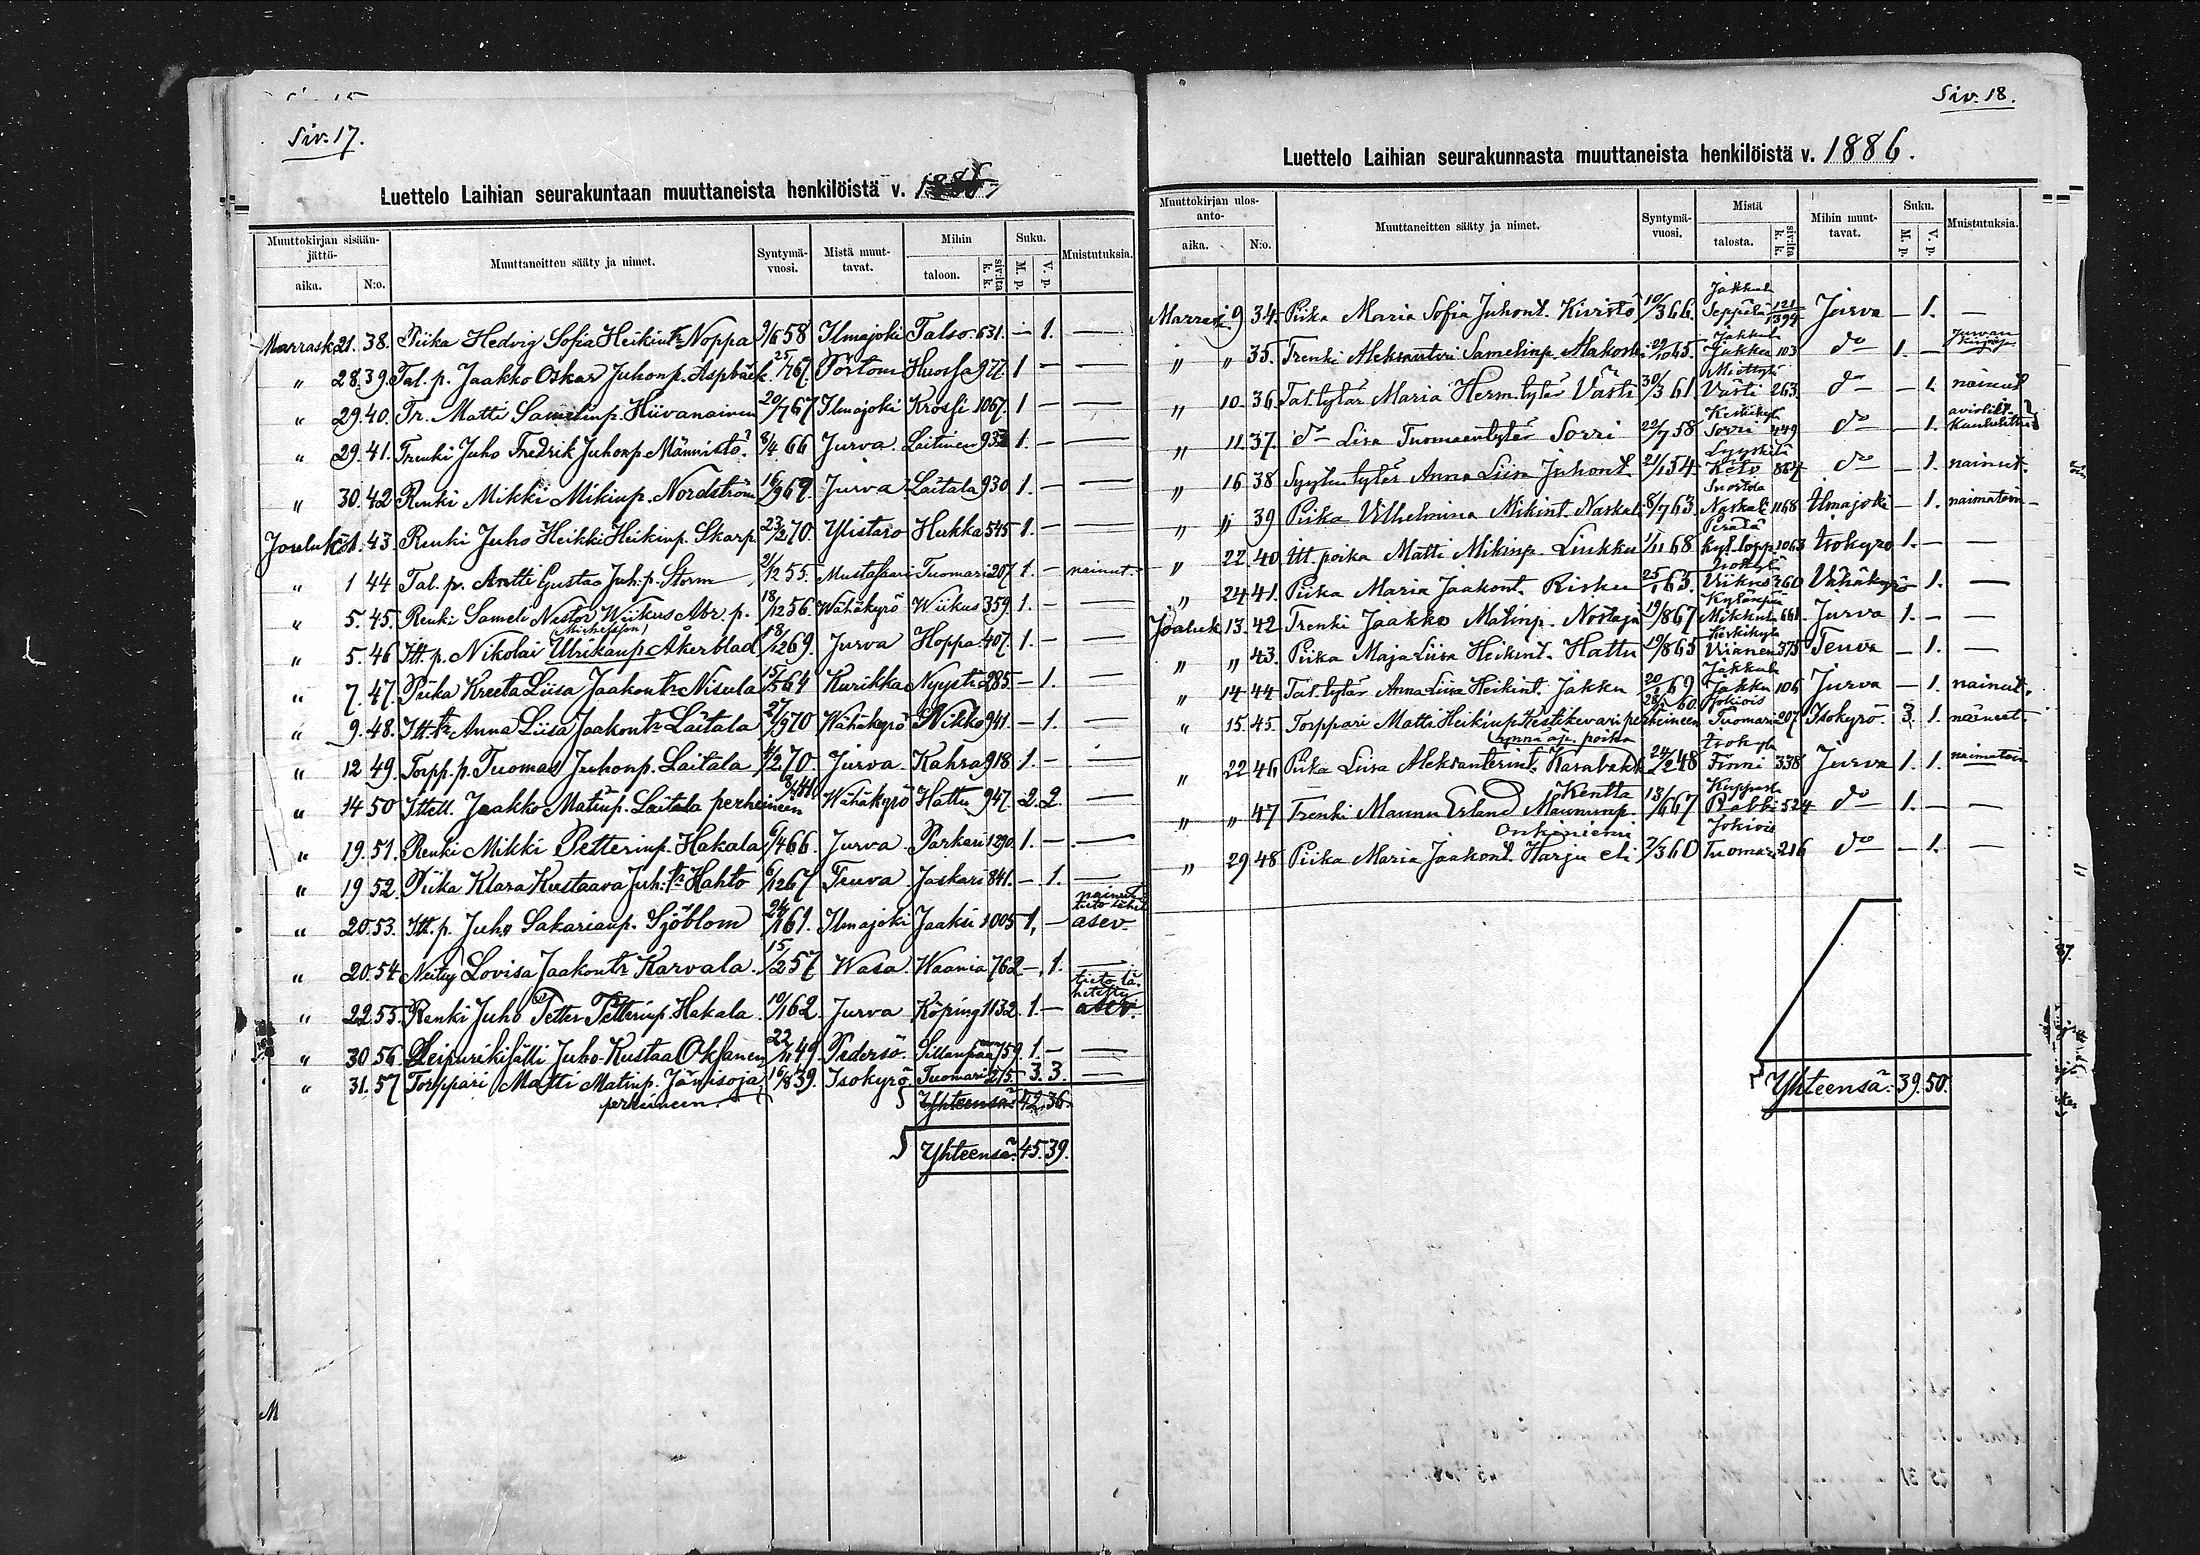 Siv. 17.
Luettelo Laihian seurakuntaan muuttaneista henkilöistä v. 1886
Muuttokirjan sisään-jättö- aika. N:o. Muuttaneitten sääty ja nimet. Syntymä-vuosi. Mistä muut-tavat. Mihin taloon. k. k. sivulta Suku. M. p. V. p. Muistutuksia.
Marrask. 21. 38. Piika Hedvig Sofia Heikint:r Noppa 9/6 58 Ilmajoki Talso 631. — 1. —
" 28. 39. Tal. p. Jaakko Oskar Juhonp. Aspbäck 25/7 67. Pörtom Huossa 977. 1 — —
" 29. 40. Tr. Matti Samelinp. Hiivanainen 20/7 67 Ilmajoki Krossi 1067. 1 — —
" 29. 41. Trenki Juho Fredrik Juhonp. Männistö 8/4 66 Jurva Laitinen 933 1. — —
" 30. 42 Renki Mikki Mikinp. Nordström 16/9 69. Jurva Laitala 930 1. — —
Jouluk. 1. 43. Renki Juho Heikki Heikinp. Skarp 23/2 70. Ylistaro Hukka 545 1. — —
" 1 44 Tal. p. Antti Gustaa Juh. p. Storm 21/12 55. Mustasaari Tuomari 207. 1. — nainut.
" 5. 45. Renki Sameli Nestor Wiikus Abr. p. 18/12 56 Wähäkyrö Wiikus 359 1. — —
(Michelsson)
" 5. 46 Itt. p. Nikolai Ulrikanp. Åkerblad 18/12 69. Jurva Hoppa 407. 1. — —
" 7. 47. Piika Kreeta Liisa Jaakont:r Nisula 15/5 64 Kurikka Nyysti 285. — 1. —
" 9. 48. Itt. t:r Anna Liisa Jaakont:r Laitala 27/9 70 Wähäkyrö Nikko 941. — 1. —
" 12 49. Torp. p. Tuomas Juhonp. Laitala 4/2 70 Jurva Kahra 918 1. — —
" 14 50 Ittell. Jaakko Matinp. Laitala perheineen 9/1 41 Wähäkyrö Hattu 947. 2. 2. —
" 19. 51. Renki Mikki Petterinp. Hakala 6/4 66. Jurva Parkari 1290. 1. — —
" 19 52. Piika Klara Kustaava Juh. t:r Hahto 6/12 67 Teuva Jaskari 841. — 1. —
nainut
" 20. 53. Itt. p. Juho Sakarianp. Sjöblom 24/1 61. Ilmajoki Jaaksi 1005 1. — asev.
" 20. 54 Neitsy Lovisa Jaakontr Karvala 15/2 57 Wasa. Waania 762 — 1. —
tieto lä-
hetetty
" 22. 55. Renki Juho Petter Petterinp. Hakala 10/1 62 Jurva Köping 1132 1. — asev.
" 30. 56. Leipurikisälli Juho Kustaa Oksanen 22/11 49. Pedersö Sillanpää 759. 1. — —
" 31. 57 Torppari Matti Matinp. Jänisoja 16/8 39. Isokyrö Tuomari 215. 3. 3. —
perheineen.
Yhteensä 42. 36.
Yhteensä 45. 39.
Siv. 18.
Luettelo Laihian seurakunnasta muuttaneista henkilöistä v. 1886.
Muuttokirjan ulos-anto- aika. N:o. Muuttaneitten sääty ja nimet. Syntymä-vuosi. Mistä talosta. k. k. sivulta Mihin muut-tavat. Suku. M. p. V. p. Muistutuksia.
Jakkula
Marrask. 9 34. Piika Maria Sofia Juhont. Kivistö 10/3 66. Seppälä 121/1394 Jurva — 1. —
Jakkula
" " 35. Trenki Aleksanteri Samelinp. Alakoski 29/10 45. Jukka 103 d:o 1. — Jurvan
" 10. 36. Tal. tytär Maria Herm. tytär Västi 30/3 61 Västi 263. d:o — 1. nainut
Keskikylä
" 11. 37. d:o Lisa Tuomaantytär Sorri 22/7 58 Sorri 449 d:o — 1.
" 16 38 Syyt. tytär Anna Liisa Juhont. 21/1 54 Keto 864 d:o — 1. nainut.
" " 39 Piika Vilhelmina Mikint. Naskali 8/7 63. Naskali 1168 Ilmajoki — 1. naimatoin
Perälä
" 22 40 Itt. poika Matti Mikinp. Linkku 1/11 68 kyl. lopp. 1063 Isokyrö 1. — —
Isokylä
" 24 41. Piika Maria Jaakont. Risku 25/1 65. Viikus 360 Vähäkyrö — 1. —
Kylänpää
Jouluk. 13. 42 Trenki Jaakko Matinp. Nostaja 19/8 67 Mikkila 661 Jurva 1. — —
Keskikylä
" " 43. Piika Maja Liisa Heikint. Hattu 19/8 65 Uiänen 375 Teuva — 1. —
Jakkula
" 14 44 Tal. tytär Anna Liisa Heikint. Jakku 20/1 69 Jakku 106 Jurva — 1. nainut.
Jokiois
" 15. 45. Torppari Matti Heikinp. Kestikevari perheineen 28/1 60. Tuomari 207 Isokyrö 3. 1. nainut.
ynnä äp. poika Isokylä
" 22 46 Piika Liisa Aleksanterint. Karabakk 24/2 48 Finni 338 Jurva 1. 1. naimatoin
Kentta
" " 47 Trenki Maunu Erland Maununp. 13/6 67 Rabbi 524 d:o 1. — —
Onkiniemi Jokiois
" 29 48 Piika Maria Jaakont. Harju eli 2/3 60 Tuomari 216 d:o — 1. —
Yhteensä: 39. 50.